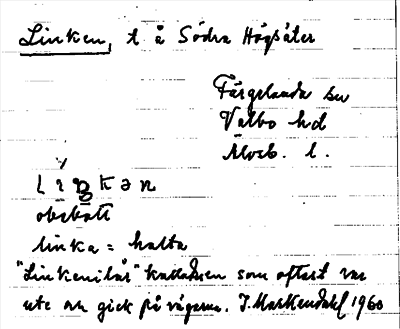 Linken, t å Södra Högsäter
Färgelanda sn
Valbo hd
Älvsb. l.
obebott
linka = halta
"Linkenilas" kallades en som oftast var
ute och gick på vägarna. J. Markendahl 1960